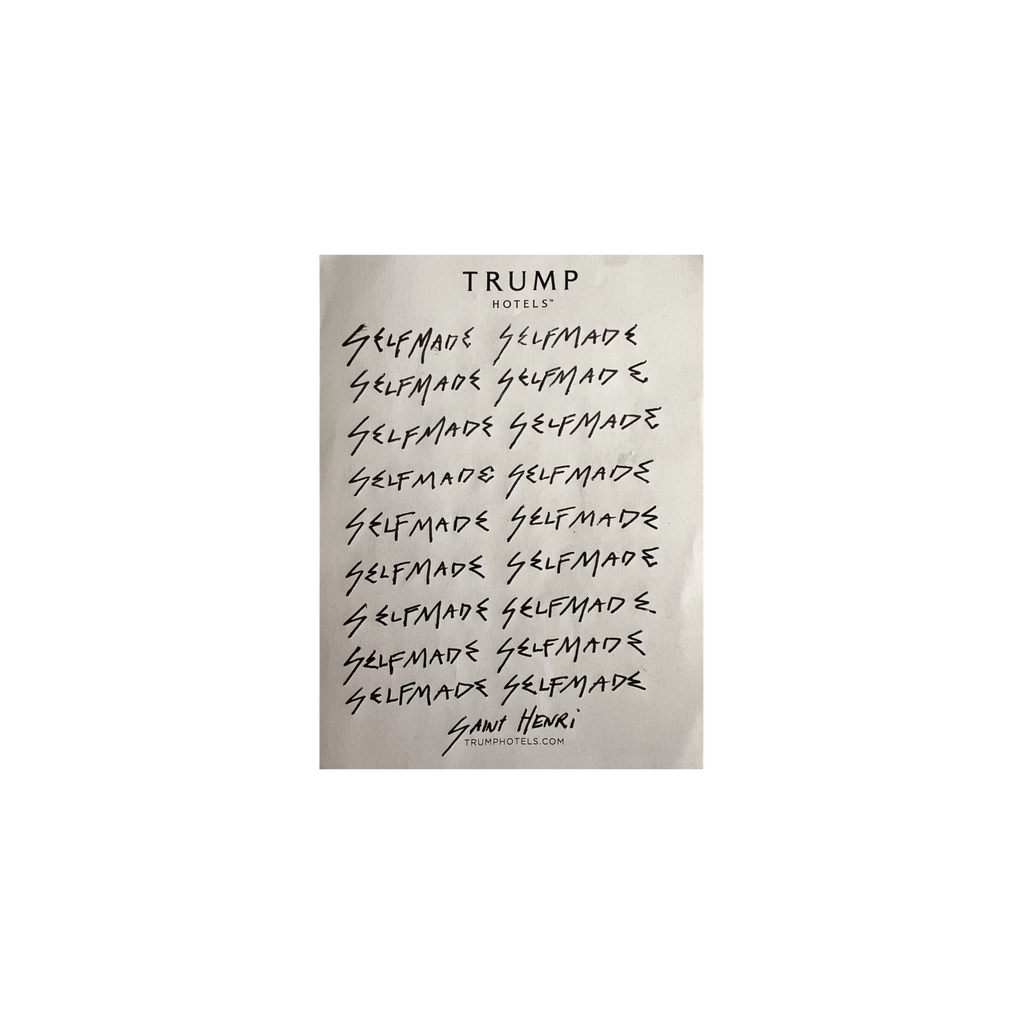 TRUMP
HOTELS™
SELFMADE SELFMADE
SELFMADE SELFMADE
SELFMADE SELFMADE
SELFMADE SELFMADE
SELFMADE SELFMADE
SELFMADE SELFMADE
SELFMADE SELFMADE
SELFMADE SELFMADE
SELFMADE SELFMADE
SAINT HENRi
TRUMPHOTELS.COM